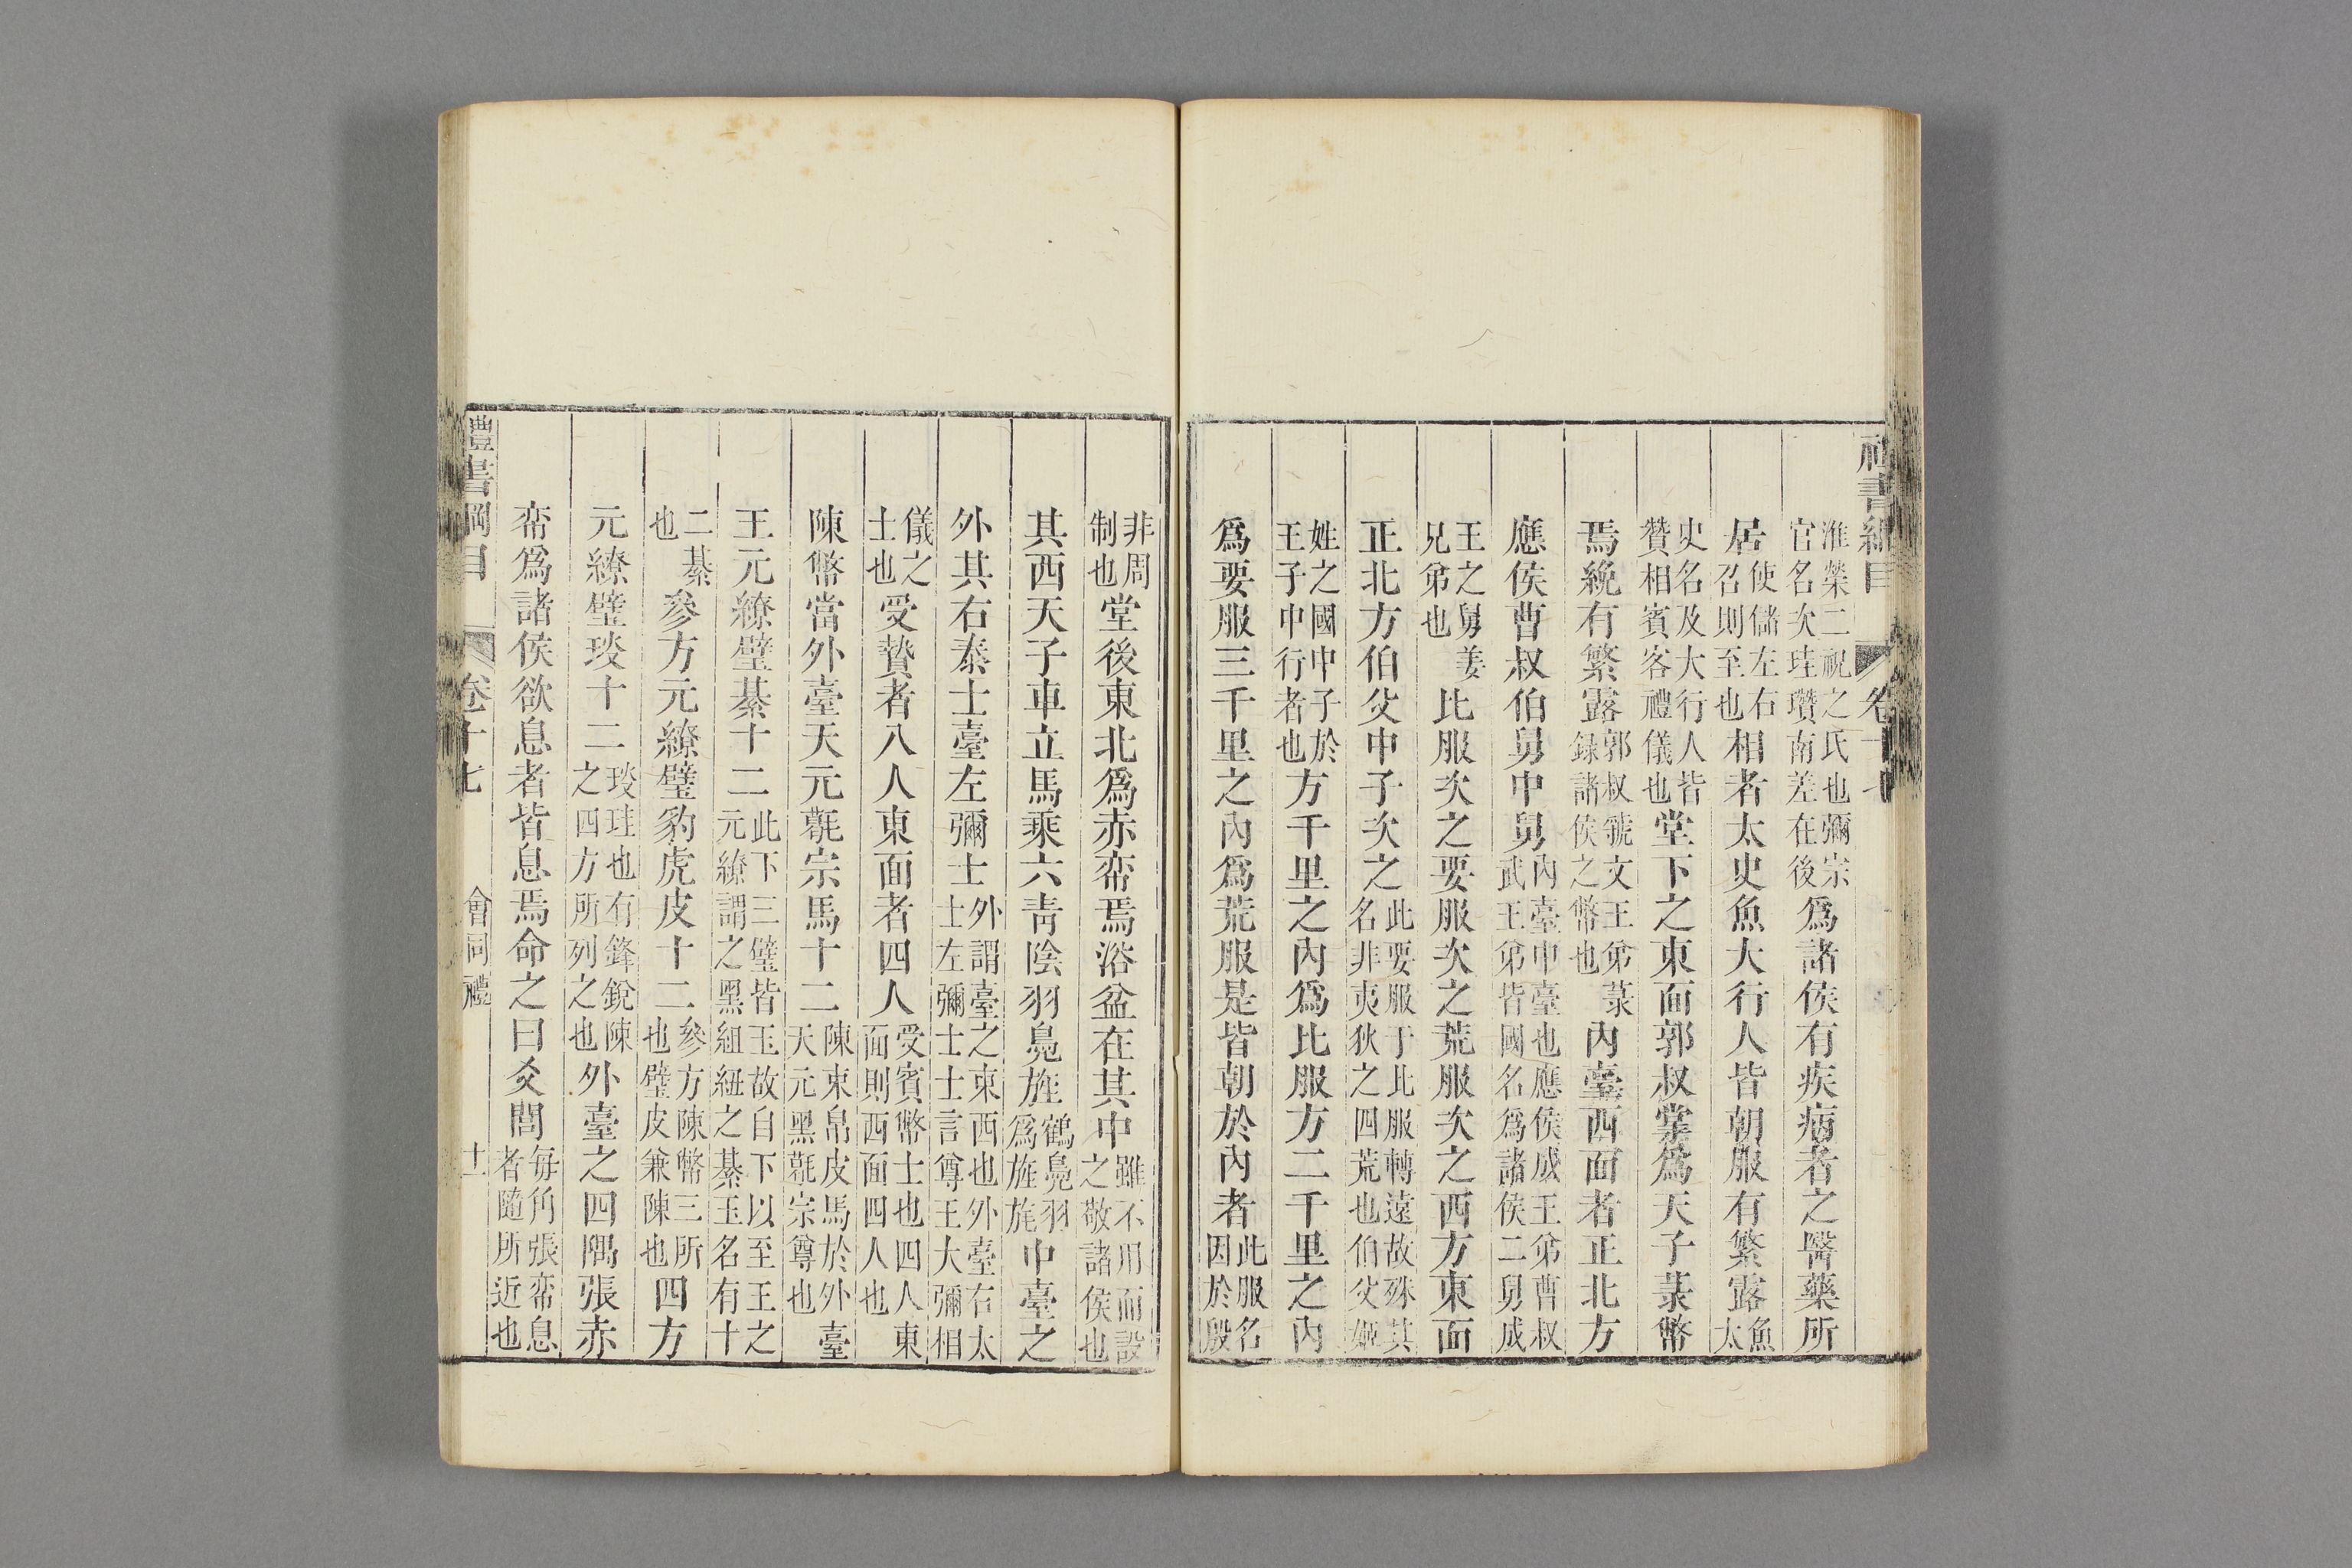 禮書綱目 卷十七
淮榮二祝之氏也彌宗官名次珪瓚南差在後爲諸侯有疾病者之醫藥所
居使儲左右召則至也相者太史魚大行人皆朝服有繁露魚太
史名及大行人皆贊相賓客禮儀也堂下之東面郭叔掌爲天子菉幣
焉絻有繁露郭叔虢文王弟菉録諸侯之幣也內臺西面者正北方
應侯曹叔伯舅中舅內臺中臺也應侯成王弟曹叔武王弟皆國名爲諸侯二舅成
王之舅姜兄弟也比服次之要服次之荒服次之西方東面
正北方伯父中子次之此要服于比服轉遠故殊其名非夷狄之四荒也伯父姬
姓之國中子於王子中行者也方千里之內爲比服方二千里之內
爲要服三千里之內爲荒服是皆朝於內者此服名因於殷
非周制也堂後東北爲赤帟焉浴盆在其中雖不用而設之敬諸侯也
其西天子車立馬乘六靑陰羽鳧旌鶴鳧羽爲旌旄中臺之
外其右泰士臺左彌士外謂臺之東西也外臺右太士左彌士士言尊王大彌相
儀之士也受贄者八人東面者四人受賓幣士也四人東面則西面四人也
陳幣當外臺天元㲠宗馬十二陳束帛皮馬於外臺天元黑㲠宗尊也
王元繚璧綦十二此下三璧皆玉故自下以至王之元繚謂之黑組紐之綦玉名有十
二綦也參方元繚璧豹虎皮十二參方陳幣三所也璧皮兼陳也四方
元繚璧琰十二琰珪也有鋒銳陳之四方所列之也外臺之四隅張赤
帟爲諸侯欲息者皆息焉命之曰爻閭每角張帟息者隨所近也
禮書綱目 卷十七 會同禮 十一